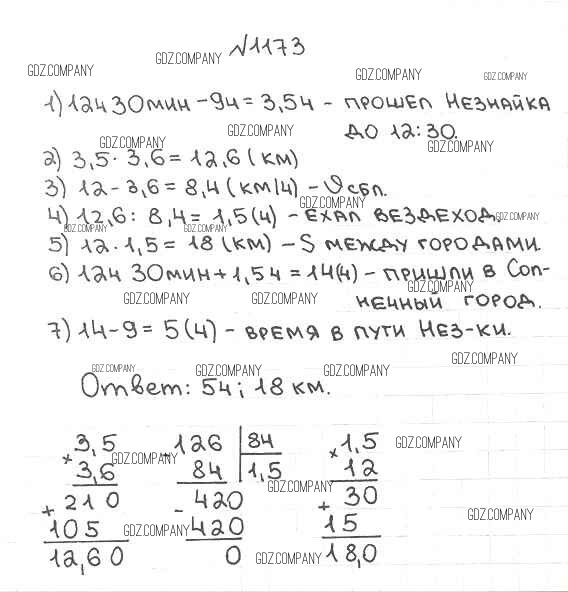 №1173
GDZ.COMPANY
GDZ.COMPANY GDZ.COMPANY GDZ.COMPANY
1) 12ч 30мин - 9ч = 3,5ч - прошел Незнайка
GDZ.COMPANY до 12:30.
GDZ.COMPANY GDZ.COMPANY
2) 3,5 · 3,6 = 12,6 (км)
3) 12 - 3,6 = 8,4 (км/ч) - Vсбл.
GDZ.COMPANY
4) 12,6 : 8,4 = 1,5 (ч) - ехал вездеход. GDZ.COMPANY
GDZ.COMPANY GDZ.COMPANY
5) 12 · 1,5 = 18 (км) - S между городами.
6) 12ч 30мин + 1,5ч = 14(ч) - пришли в Сол-
GDZ.COMPANY
GDZ.COMPANY GDZ.COMPANY нечный город.
7) 14 - 9 = 5 (ч) - время в пути Нез-ки.
GDZ.COMPANY
GDZ.COMPANY GDZ.COMPANY GDZ.COMPANY
Ответ: 5ч; 18 км.
× 3,5 - 126 | 84 × 1,5 GDZ.COMPANY
3,6 GDZ.COMPANY 84 1,5 12
+ 210 - 420 GDZ.COMPANY + 30
105 GDZ.COMPANY 420 15 GDZ.COMPANY
12,60 0 GDZ.COMPANY 18,0